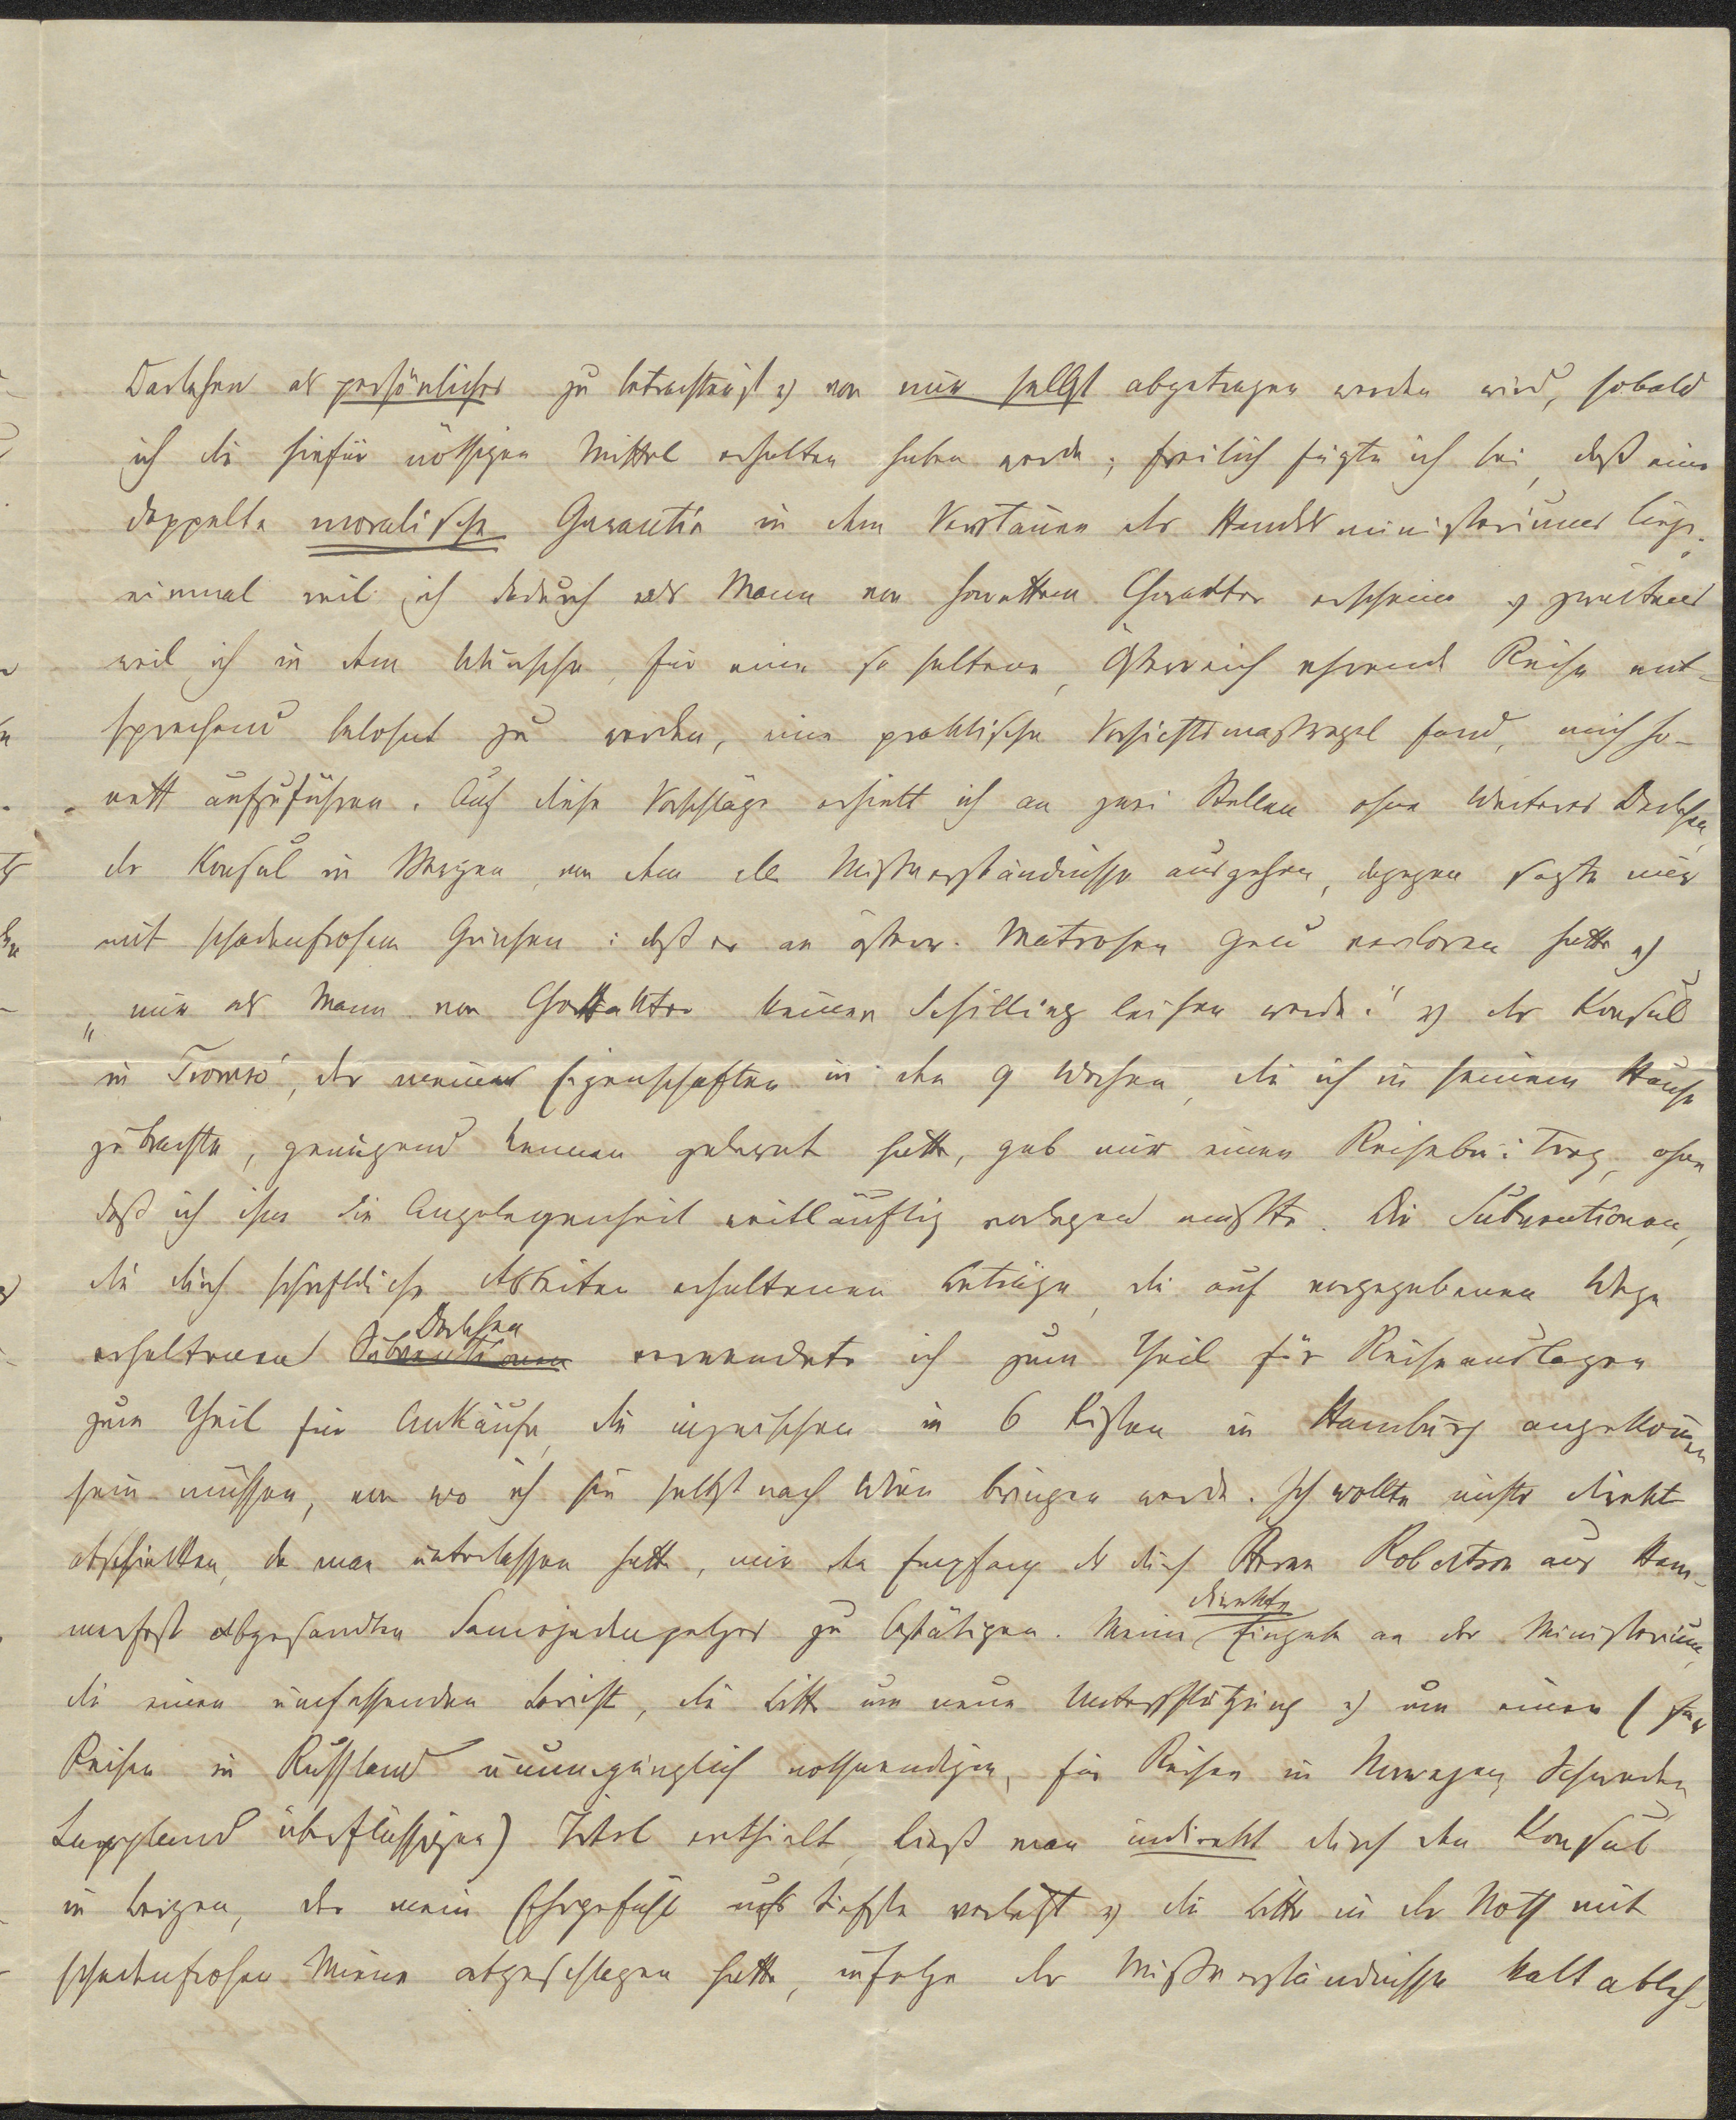 Darlehen als persönliches zu betrachten ist u von mir selbst abgetragen werden wird, sobald
ich die hiefür nöthigen Mittel erhalten haben werde; freilich fügte ich bei, daß eine
doppelte moralische Garantie in dem Vertrauen des Handelsministeriums liege.
einmal weil ich dadurch als Mann von honettem Charakter erscheine u zweitens
weil ich in dem Wunsche, für eine so seltene, Österreich ehrende Reise ent-
sprechend belohnt zu werden, eine praktische Vorsichtsmaßregel fand, mich ho-
nett aufzuführen. Auf diese Vorschläge erhielt ich an zwei Stellen ohne Weiteres Darlehen,
der Konsul in Bergen, von dem alle Mißverständnisse ausgehen, dagegen sagte mir
mit schadenfrohem Grinsen: daß er an österr. Matrosen Geld verloren hätte u
„mir als Mann von Charakter keinen Schilling leihen werde!" u der Konsul
in Tromsö, der meine Eigenschaften in den 9 Wochen, die ich in seinem Hause
zubrachte, genügend kennen gelernt hatte, gab mir einen Reisebeitrag, ohne
daß ich ihm die Angelegenheit weitläuftig vorlegen mußte. Die Subventionen,
die durch schriftliche Arbeiten erhaltenen Beträge, die auf vorgegebenem Wege
erhaltenen Subventionen Darlehen verwendete ich zum Theil für Reiseauslagen
zum Theil für Ankäufe, die inzwischen in 6 Kisten in Hamburg angekommen
sein müssen, von wo ich sie selbst nach Wien bringen werde. Ich wollte nichts direkt
abschicken, da man unterlassen hatte, mir den Empfang des durch Herrn Robertson aus Ham-
merfest abgesandten Samojedenpelzes zu bestätigen. Meine direkte Eingabe an das Ministerium,
die einen umfassenden Bericht, die Bitte um neue Unterstützung u um einen (für
Reisen in Russland unumgänglich nothwendigen, für Reisen in Norwegen, Schweden
Lappland überflüssigen) Titel enthielt, ließ man indirekt durch den Konsul
in Bergen, der mein Ehrgefühl aufs tiefste verletzt u die Bitte in der Noth mit
schadenfroher Miene abgeschlagen hatte, infolge der Mißverständnisse kalt ableh-